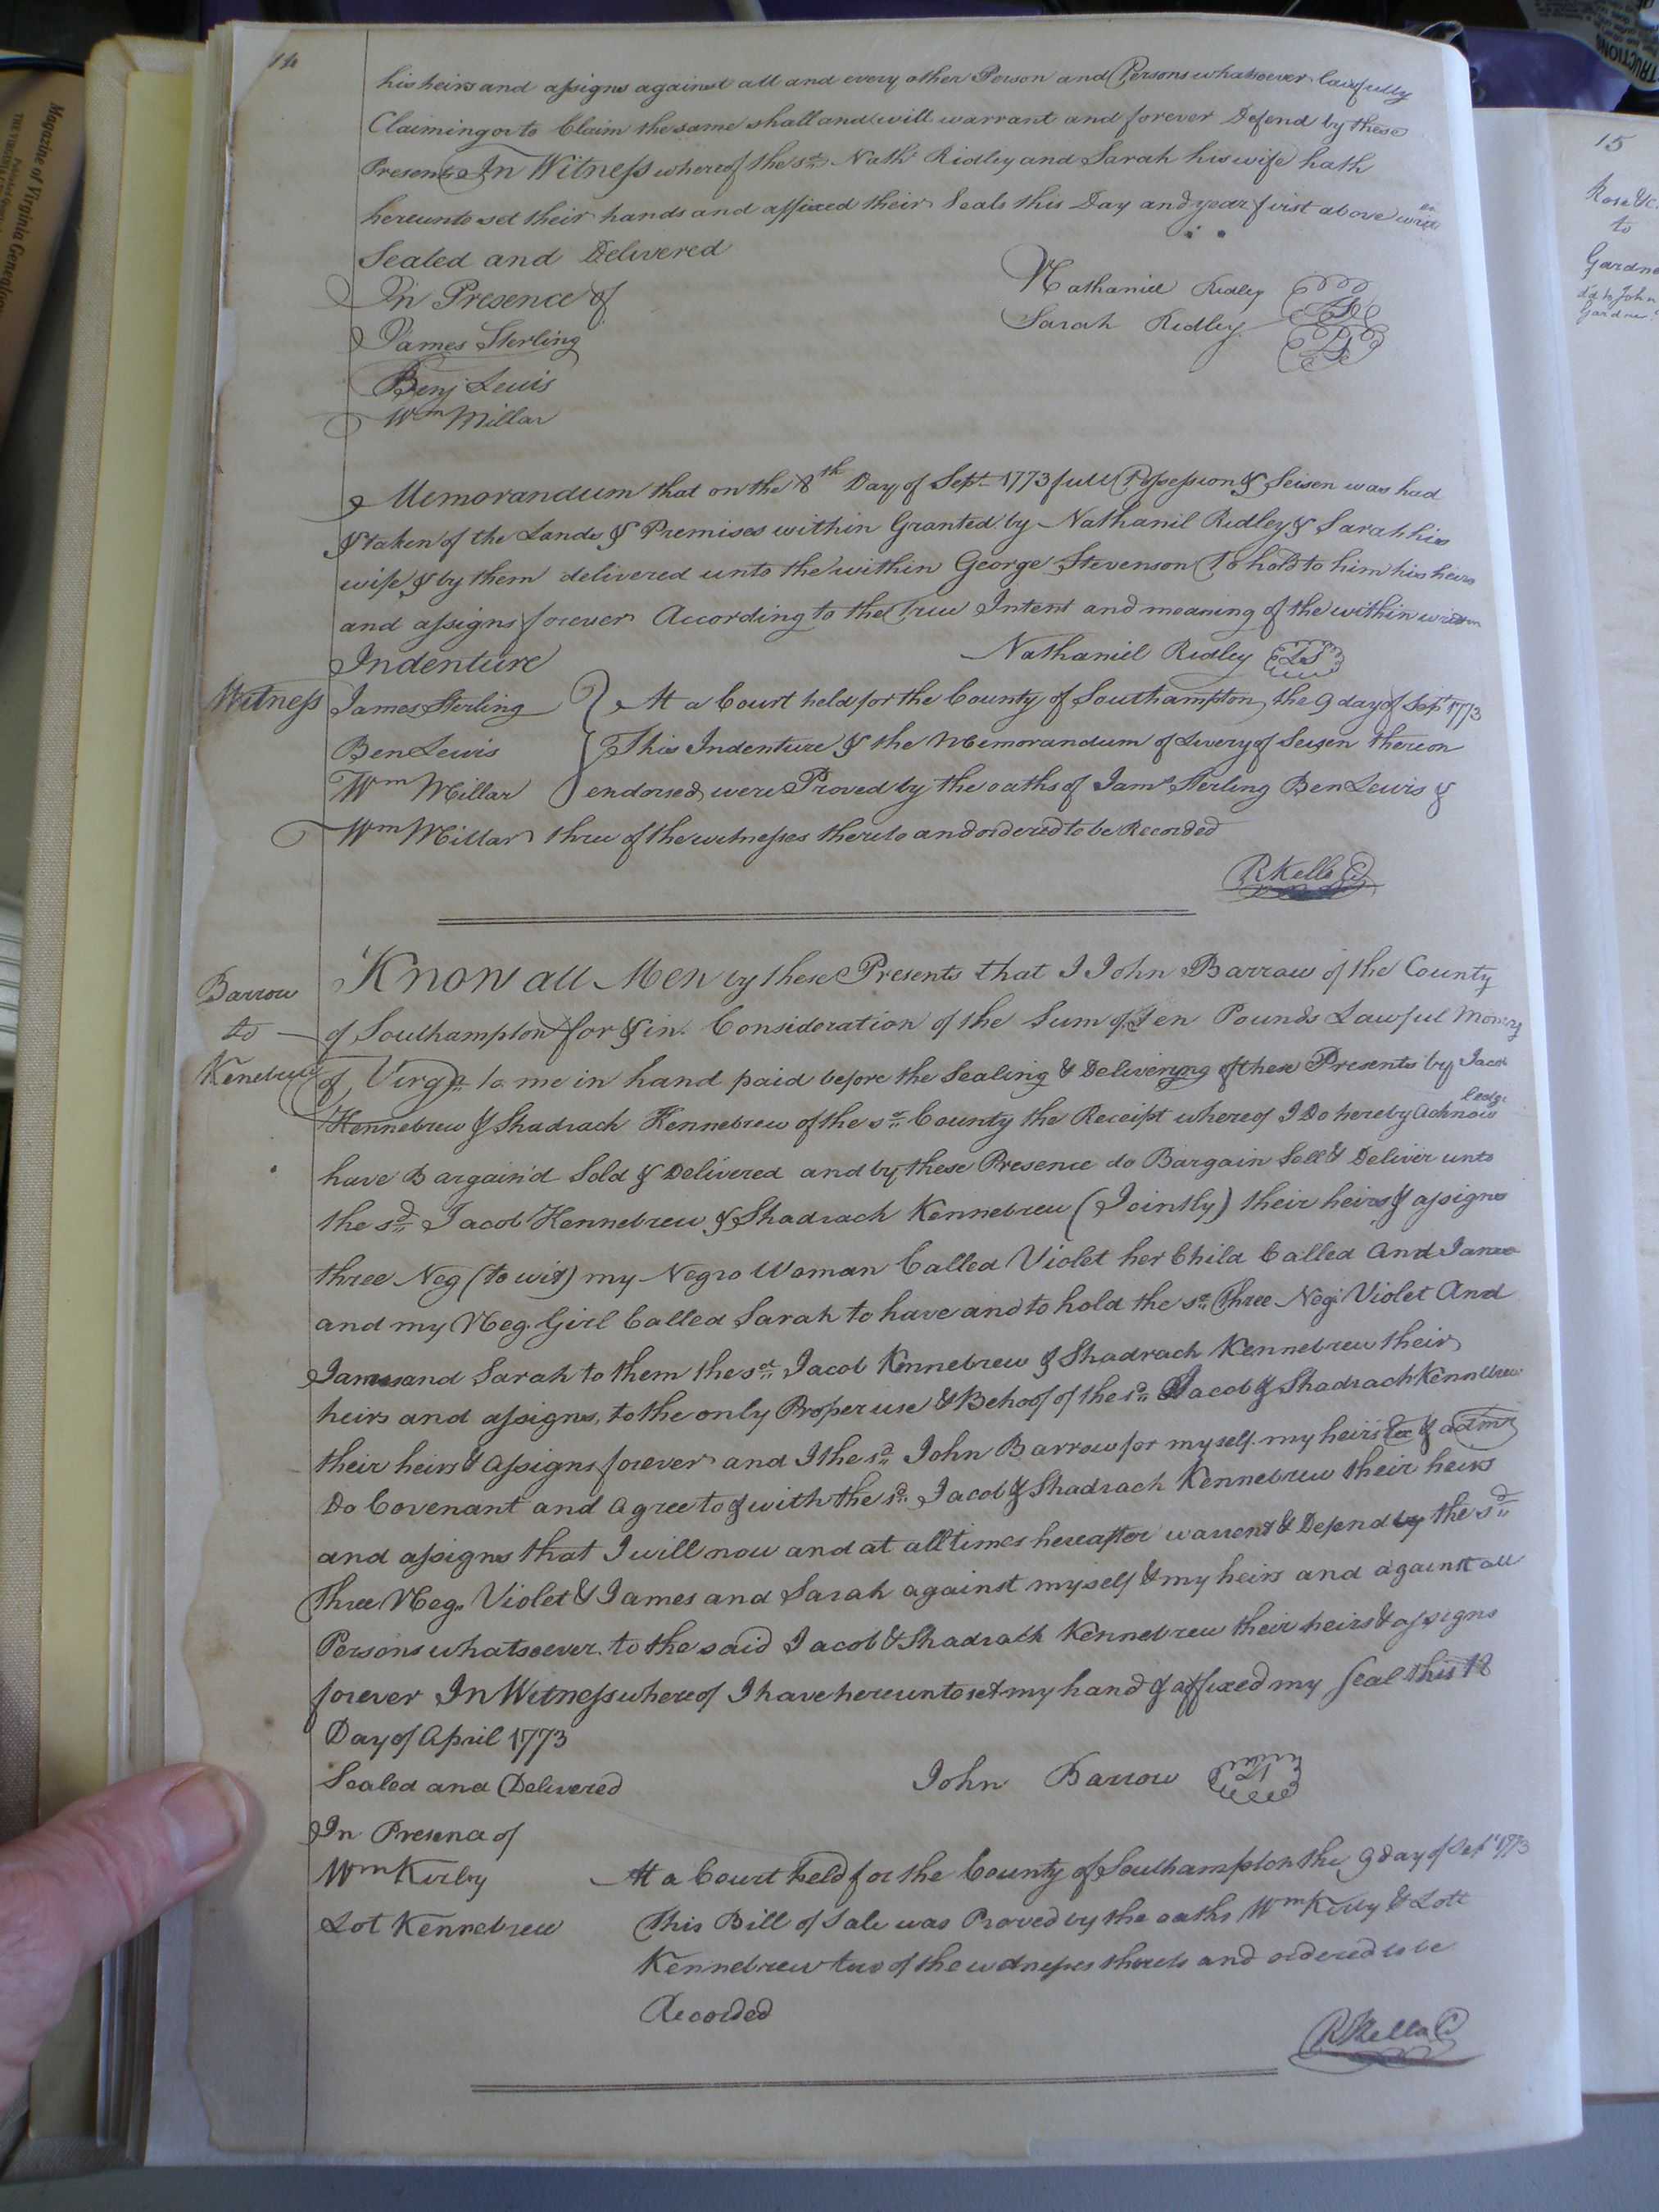 14
his heirs and assigns against all and every other Person and Persons whatsoever lawfully
Claiming or to Claim the same shall and will warrant and forever Defend by these
Presents In Witness whereof the sd. Nathl Ridley and Sarah his wife hath
hereunto set their hands and affixed their Seals this Day and year first above written
Sealed and Delivered
In Presence of
Nathaniel Ridley LS
James Sterling
Sarah Ridley LS
Benj Lewis
Wm Millar
Memorandum that on the 8th Day of Sept 1773 full Possession & Seisen was had
& taken of the Lands & Premises within Granted by Nathanil Ridley & Sarah his
wife & by them delivered unto the within George Stevenson To hold to him his heirs
and assigns forever According to the True Intent and meaning of the within written
Indenture
Nathaniel Ridley LS
Witness James Sterling At a Court held for the County of Southampton the 9 day of Sept 1773
Ben Lewis This Indenture & the Memorandum of Livery of Seisen thereon
Wm Millar endorsed were Proved by the oaths of Jams Sterling Ben Lewis &
Wm Millar three of the witnesses thereto and ordered to be Recorded
R Kello C
Barrow
to
Kenebrew
Know all Men by these Presents that I John Barrow of the County
of Southampton for & in Consideration of the Sum of Ten Pounds Lawful Money
of Virga to me in hand paid before the Sealing & Delivering of these Presents by Jacob
Kennebrew & Shadrach Kennebrew of the sd. County the Receipt whereof I Do hereby acknowledge
have Bargain'd Sold & Delivered and by these Presence do Bargain Sell & Deliver unto
the sd. Jacob Kennebrew & Shadrach Kennebrew (Jointly) their heirs & assigns
three Neg (to wit) my Negro Woman Called Violet her Child Called And James
and my Neg. Girl Called Sarah to have and to hold the sd. Three Neg. Violet And
James and Sarah to them the sd. Jacob Kennebrew & Shadrach Kennebrew their
heirs and assigns, to the only Proper use & Behoof of the sd. Jacob & Shadrach Kennebrew
their heirs & assigns forever and I the sd. John Barrow for myself my heirs Ex & admr
Do Covenant and agree to & with the sd. Jacob & Shadrach Kennebrew their heirs
and assigns that I will now and at all times hereafter warrent & Defend by the sd.
Three Neg. Violet & James and Sarah against myself & my heirs and against all
Persons whatsoever to the said Jacob & Shadrach Kennebrew their heirs & assigns
forever In Witness whereof I have hereunto set my hand & affixed my Seal this 18
Day of April 1773
Sealed and Delivered
John Barrow LS
In Presence of
Wm Kirby At a Court held for the County of Southampton the 9 day of Sept 1773
Lot Kennebrew This Bill of Sale was Proved by the oaths Wm Kirby & Lott
Kennebrew two of the witnesses thereto and ordered to be
Recorded
R Kello C
15
Rose &c.
to
Gardne
dd to John
Gardne
Magazine of Virginia Genealogy